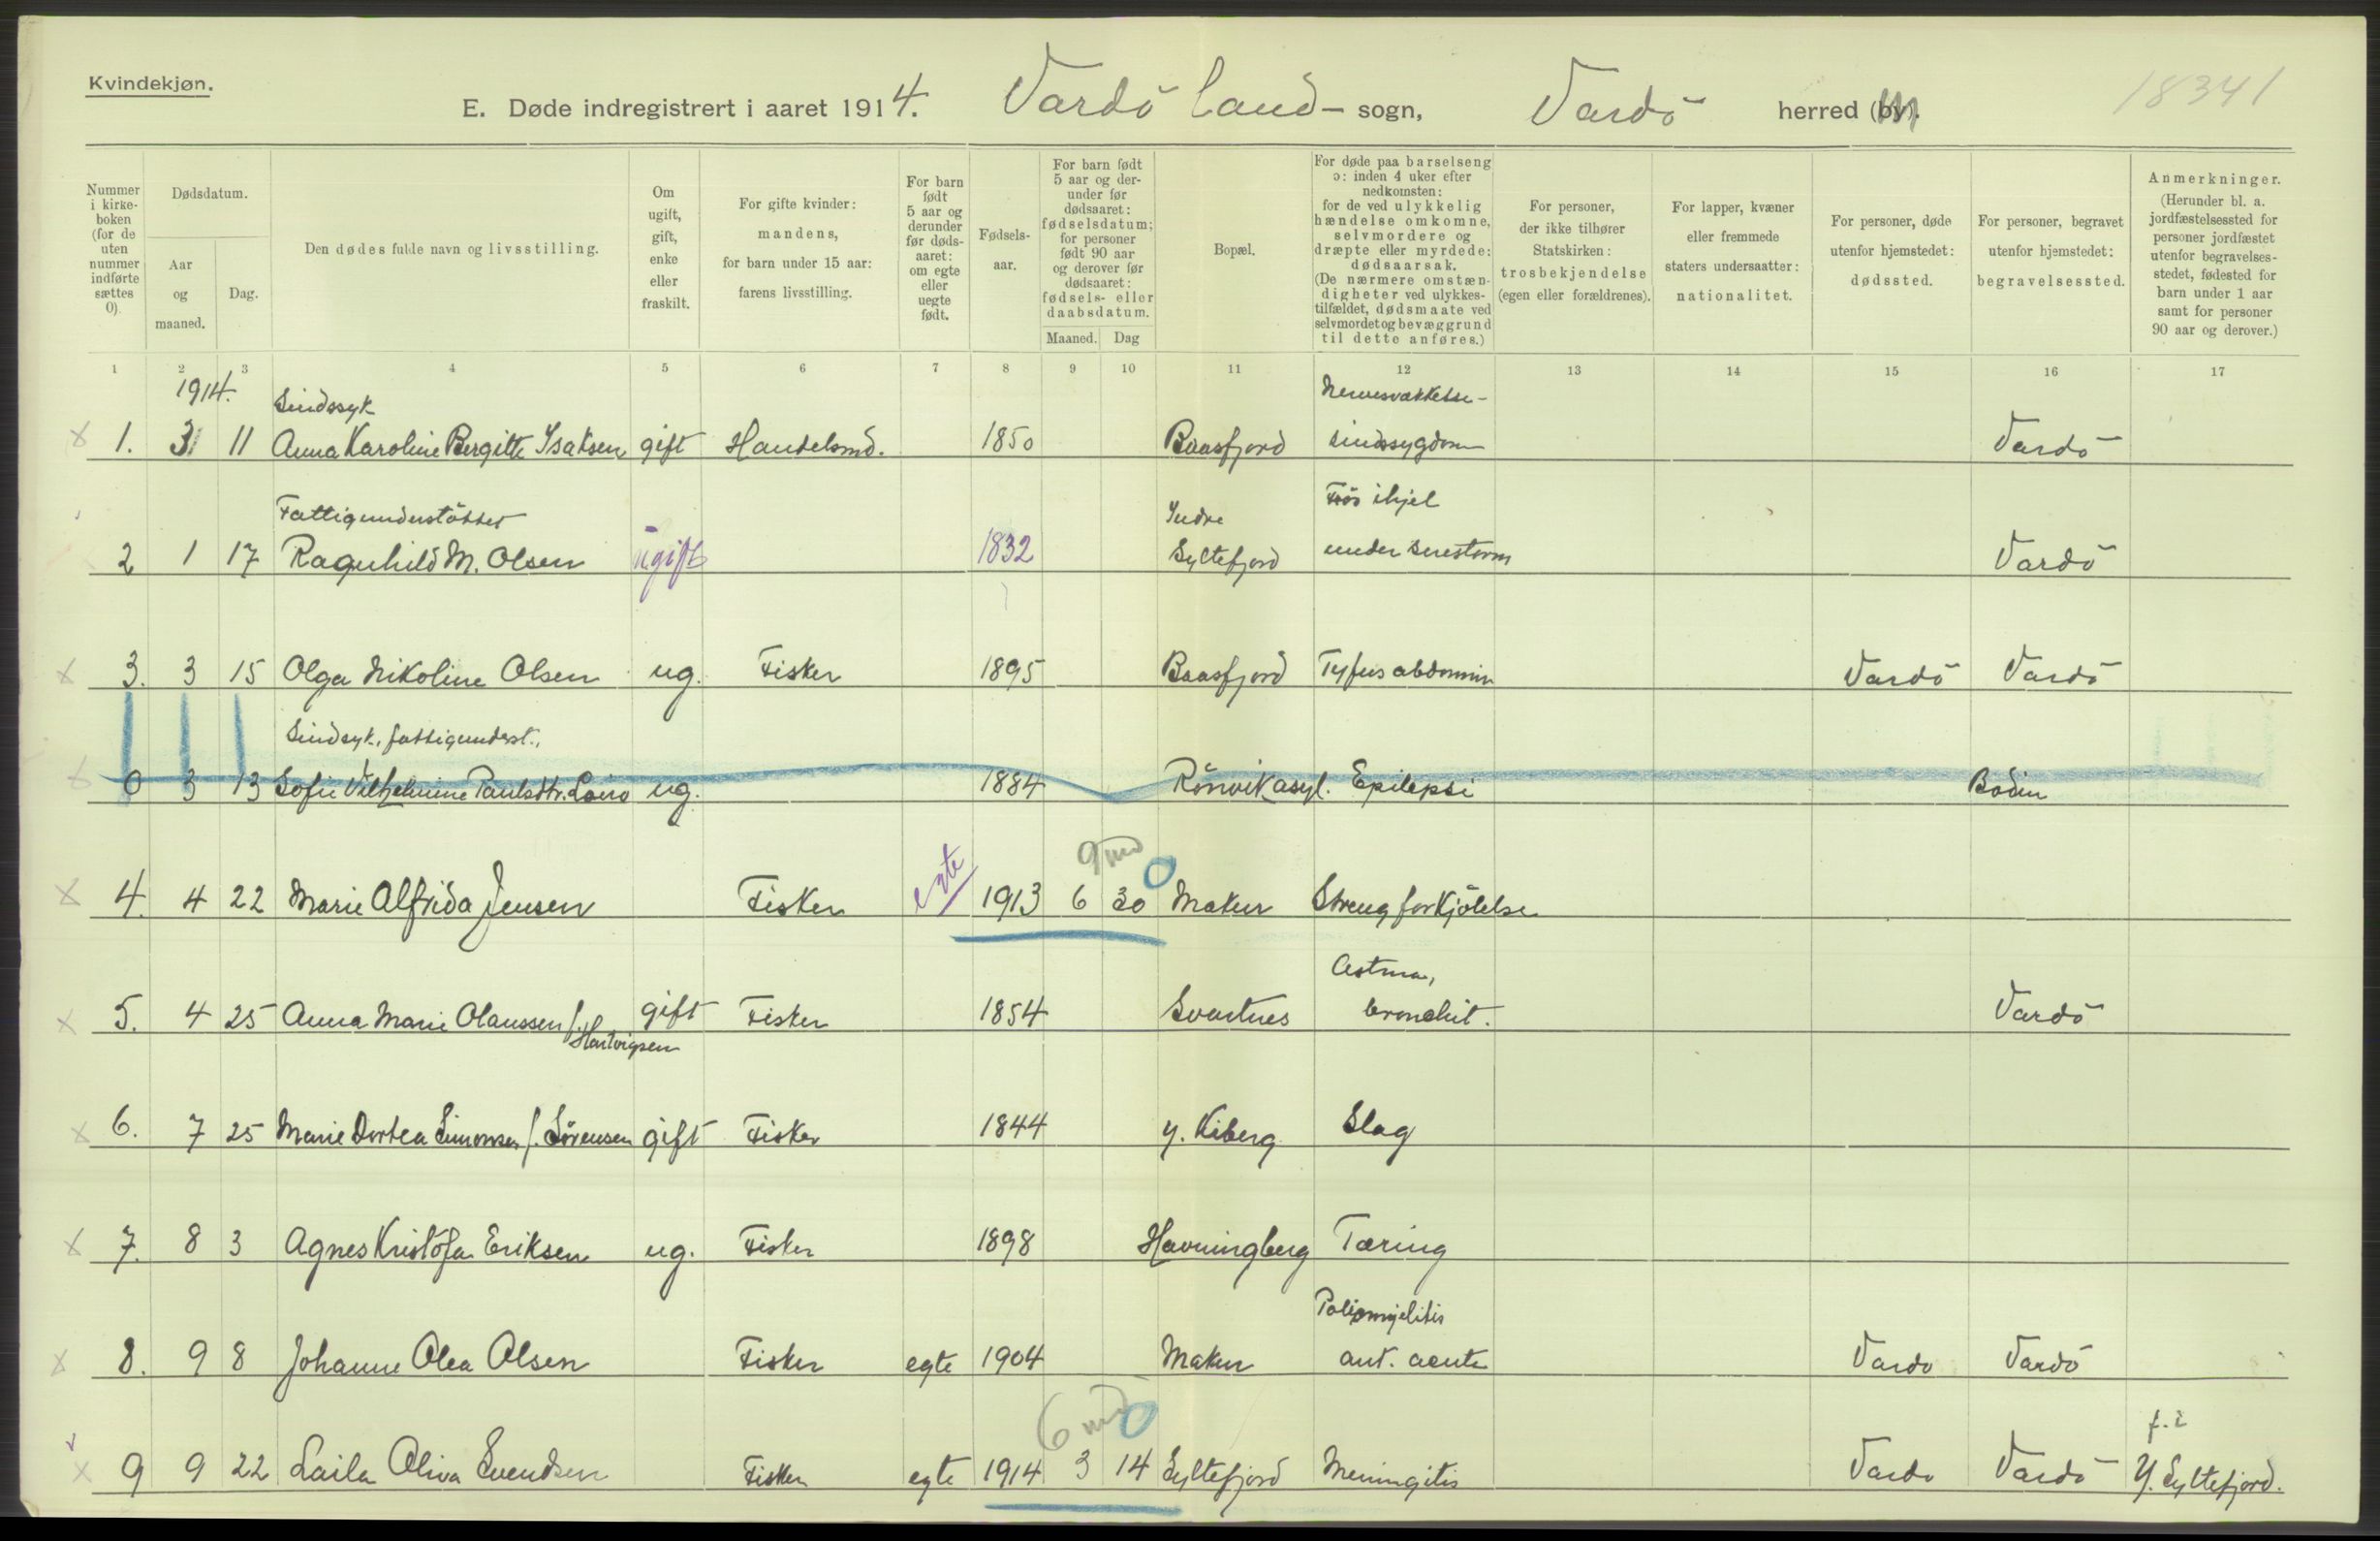 Kvindekjøn.
18341
E. Døde indregistrert i aaret 1914. Vardö land- sogn, Vardö herred (by).
Nummer i kirke-boken (for de uten nummer indførte sættes 0).
Dødsdatum.
Aar og maaned.
Dag.
Den dødes fulde navn og livsstilling.
Om ugift, gift, enke eller fraskilt.
For gifte kvinder: mandens, for barn under 15 aar: farens livsstilling.
For barn født 5 aar og derunder før døds-aaret: om egte eller uegte født.
Fødsels-aar.
For barn født 5 aar og der-under før dødsaaret: fødselsdatum; for personer født 90 aar og derover før dødsaaret: fødsels- eller daabsdatum.
Maaned. Dag
Bopæl.
For døde paa barselseng ɔ: inden 4 uker efter nedkomsten: for de ved ulykkelig hændelse omkomne, selvmordere og dræpte eller myrdede: dødsaarsak. (De nærmere omstæn-digheter ved ulykkes-tilfældet, dødsmaate ved selvmordet og bevæggrund til dette anføres.)
For personer, der ikke tilhører Statskirken: trosbekjendelse (egen eller forældrenes).
For lapper, kvæner eller fremmede staters undersaatter: nationalitet.
For personer, døde utenfor hjemstedet: dødssted.
For personer, begravet utenfor hjemstedet: begravelsessted.
Anmerkninger. (Herunder bl. a. jordfæstelsessted for personer jordfæstet utenfor begravelses-stedet, fødested for barn under 1 aar samt for personer 90 aar og derover.)
1 2 3 4 5 6 7 8 9 10 11 12 13 14 15 16 17
1914. Sindssyk Nervesvækkelse-
1. 3 11 Anna Karoline Bergitte Isaksen gift Handelsmd. 1850 Baasfjord sindssygdom Vardö
Fattigunderstöttet Indre Frös ihjel
2 1 17 Ragnhild M. Olsen ugift 1832 Syltefjord under snestorm Vardö
3. 3 15 Olga Nikoline Olsen ug. Fisker 1895 Baasfjord Tyfus abdomin Vardö Vardö
Sindsyk, fattigunderst.,
0 3 13 Sofie Vilhelmine Paulsdtr. ug. 1884 Rönvik asyl. Epilepsi Bodin
9 md 0
4. 4 22 Marie Alfrida Jensen Fisker egte 1913 6 30 Makur Streng forkjölelse
Astma,
5. 4 25 Anna Marie Olaussen f. Hartvigsen gift Fisker 1854 Svartnes bronchit. Vardö
6. 7 25 Marie Dortea Simonsen f. Sörensen gift Fisker 1844 Y. Kiberg Slag
7. 8 3 Agnes Kristofa Eriksen ug. Fisker 1898 Havningberg Tæring
Poliomyelitis
8. 9 8 Johanne Olea Olsen Fisker egte 1904 Makur ant. acute Vardö Vardö
6 md 0 f. i
9 9 22 Laila Oliva Svendsen Fisker egte 1914 3 14 Syltefjord Meningitis Vardö Vardö Y. Syltefjord.